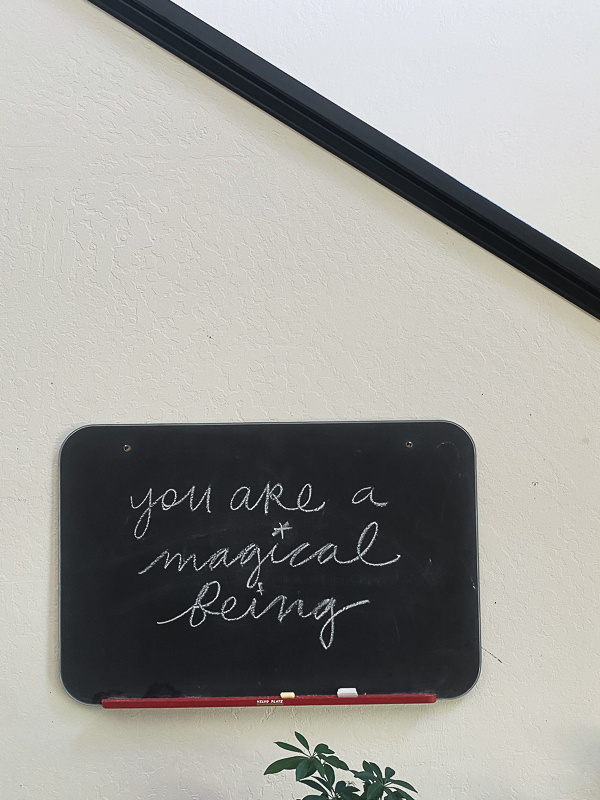 you are a
magical
being